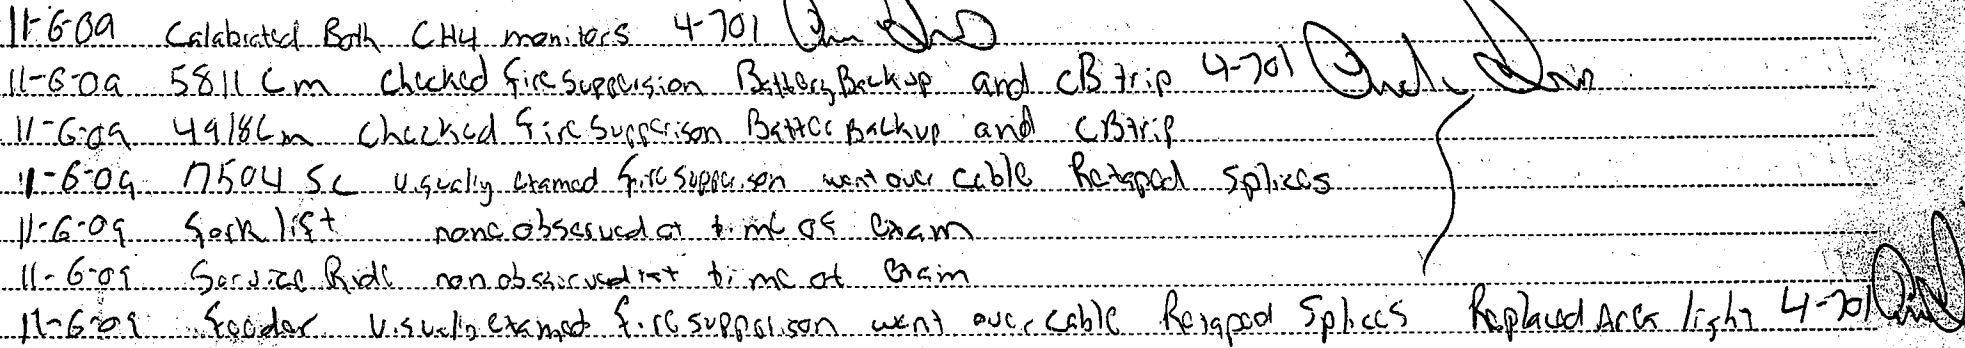 11-6-09 Calabrated Both CH4 monitors 4-701
11-6-09 5811 Cm Checked fire Supperision Battery Backup and CB trip 4-701
11-6-09 4918 Cm Checked fire Supperison Batter Backup and CB trip
11-6-09 17504 SC Usually examed fire supperison went over cable Retaped Splices
11-6-09 fork lift none observed at time of Exam
11-6-09 Service Ride non observed at time of Exam
11-6-09 feeder Usually examed fire supperison went over cable Retaped Splices Replaced Area light 4-701